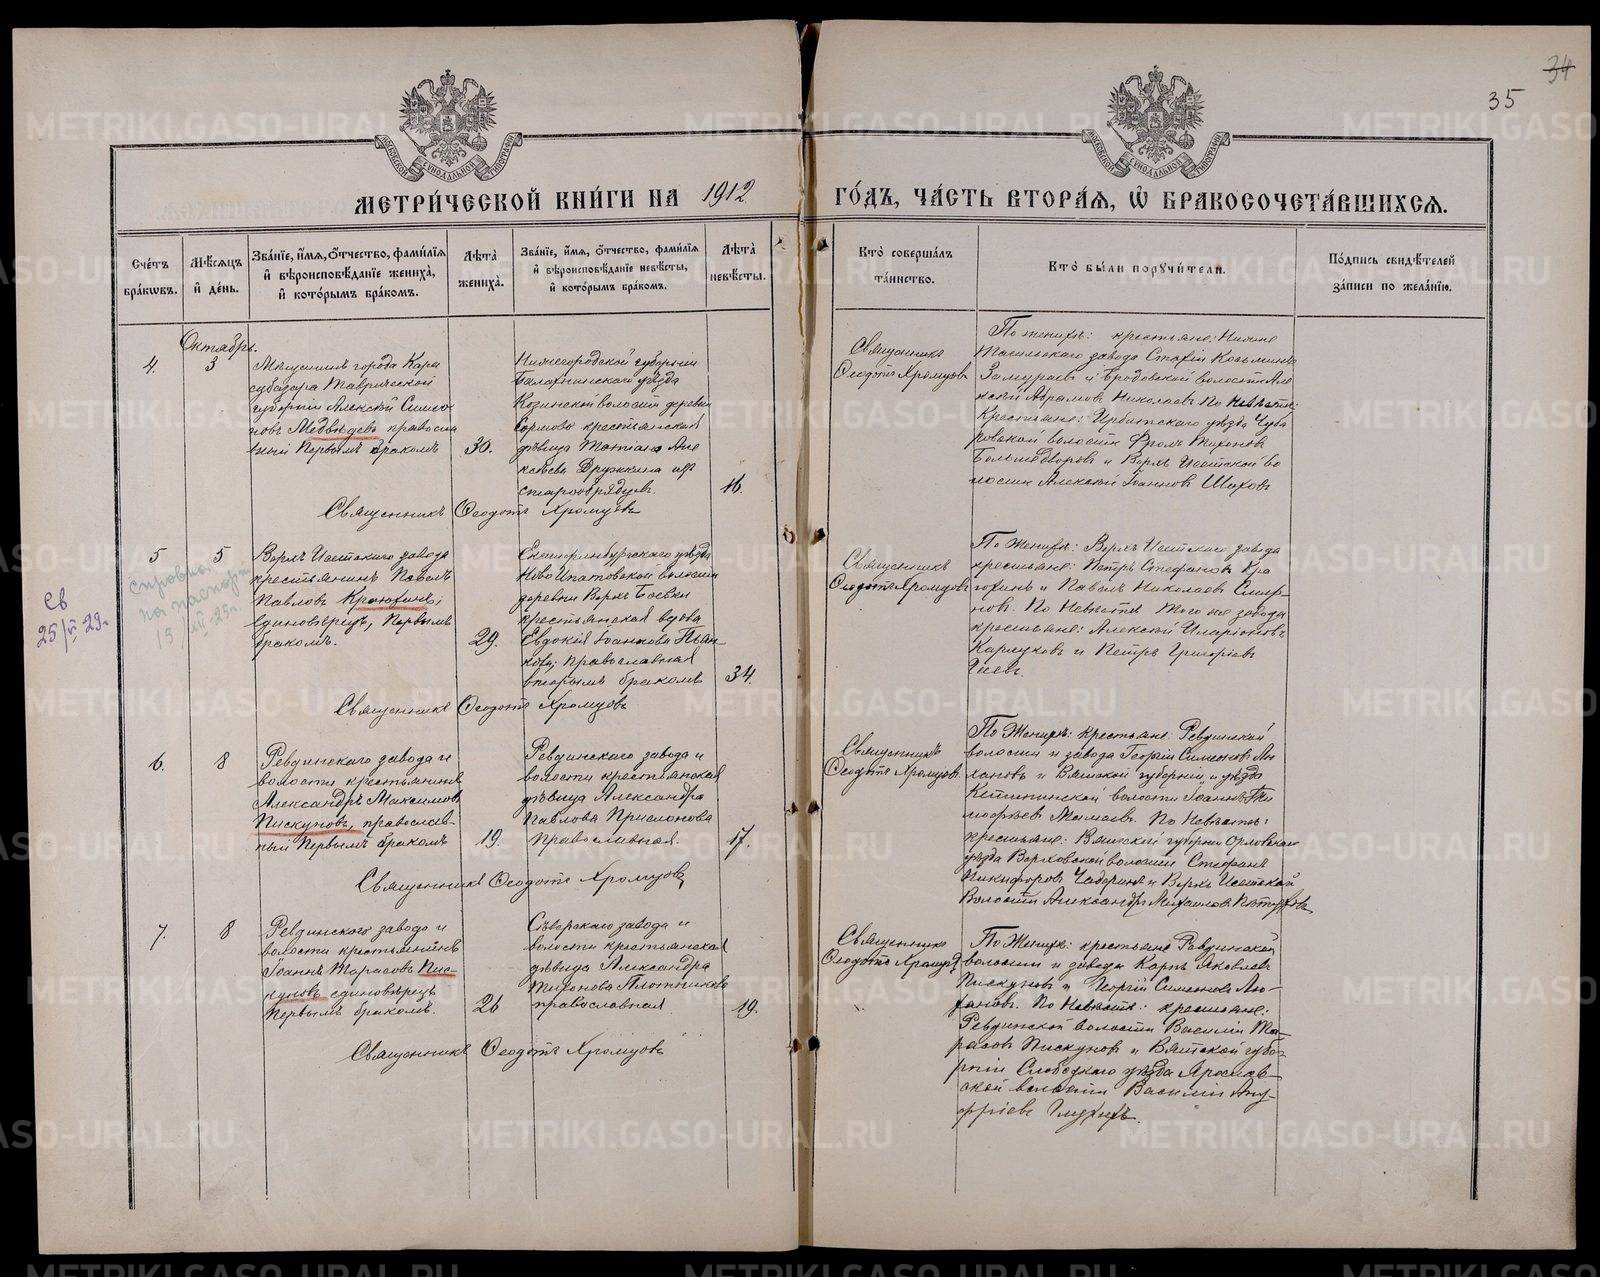 34
35
МЕТРИ́ЧЕСКОЙ КНИ́ГИ НА 1912 ГО́ДЪ, ЧА́СТЬ ВТОРА́Я, Ѡ БРАКОСОЧЕТА́ВШИХСЯ.
Сче́тъ бра́ковъ.
Мѣ́сяцъ и де́нь.
Зва́нїе, и́мя, о́тчество, фами́лїя и вѣроисповѣ́данїе жениха̀, и кото́рымъ бра́комъ.
Лѣта̀ жениха̀.
Зва́нїе, и́мя, о́тчество, фами́лїя и вѣроисповѣ́данїе невѣ́сты, и кото́рымъ бра́комъ.
Лѣта̀ невѣ́сты.
Кто̀ соверша́лъ та́инство.
Кто̀ бы́ли поручи́тели.
По́дпись свидѣ́телей за́писи по жела́нїю.
Октябрь.
4.
3
Мѣщанинъ города Кара
субазара Таврической
губернiи Алексѣй Симо
новъ Медвѣдевъ правосла
вный Первымъ бракомъ
30.
Нижегородской губернiи
Балахнинскаго уѣзда
Козинской волости деревни
Сормово крестьянская
дѣвица Татiана Але
ксѣева Дружкина изъ
старообрядцевъ.
16.
Священникъ
Ѳеодотъ Хромцовъ
По женихѣ: крестьяне: Нижне
Тагильскаго завода Стахiй Козьминъ
Замураевъ и Бродовской волости Але
ксѣй Абрамовъ Николаевъ По Невѣстѣ:
Крестьяне: Ирбитскаго уѣзда Чуба
ровской волости Фролъ Тихоновъ
Большедворовъ и Верхъ Исетской во
лости Алексѣй Iоанновъ Шиховъ
Священникъ Ѳеодотъ Хромцовъ
5
5
Верхъ Исетскаго завода
крестьянинъ Павелъ
Павловъ Краюхинъ,
единовѣрецъ, Первымъ
бракомъ.
29.
Екатеринбургскаго уѣзда
Ново Ипатовской волости
деревни Верхъ Боевки
крестьянская вдова
Евдокiя Iоаннова Пьян-
кова; православная
вторымъ бракомъ
34.
Священникъ
Ѳеодотъ Хромцовъ
По Женихѣ: Верхъ Исетскаго завода
крестьяне: Петръ Стефановъ Кра
юхинъ и Павелъ Николаевъ Смир-
новъ. По Невѣстѣ Того же завода
крестьяне: Алексѣй Иларiоновъ
Кармуковъ и Петръ Григорiевъ
Священникъ Ѳеодотъ Хромцовъ
справка
на паспортъ
15/XII-25 г.
св
25/VI-29 г.
6.
8
Ревдинскаго завода и
волости крестьянинъ
Александръ Максимовъ
Пискуновъ, православ-
ный Первымъ бракомъ
19.
Ревдинскаго завода и
волости крестьянская
дѣвица Александра
Павлова
православная.
17.
Священникъ
Ѳеодотъ Хромцовъ
По Женихѣ: крестьяне: Ревдинской
волости и завода Георгiй Симеоновъ
и Вятской губернiи и уѣзда
волости Iоаннъ Ти
моѳеевъ Мамаевъ. По Невѣстѣ:
крестьяне: Вятской губернiи Орловскаго
уѣзда Верховской волости Стефанъ
Никифоровъ и Верхъ Исетской
Волости Александръ Михаиловъ
Священникъ Ѳеодотъ Хромцовъ
7.
8
Ревдинскаго завода и
волости крестьянинъ
Iоаннъ Тарасовъ Пис-
куновъ единовѣрецъ
Первымъ бракомъ.
26
Сѣверскаго завода и
волости крестьянская
дѣвица Александра
Тихонова Плотникова
православная.
19.
Священникъ
Ѳеодотъ Хромцовъ
По Женихѣ: крестьяне Ревдинской
волости и завода Карпъ Яковлевъ
Пискуновъ и Георгiй Симеоновъ
По Невѣстѣ: крестьяне:
Ревдинской волости Василiй Та-
расовъ Пискуновъ и Вятской губе-
рнiи Слободскаго уѣзда Ярослав-
ской волости Василiй Ану-
фрiевъ Глухихъ.
Священникъ Ѳеодотъ Хромцовъ
METRIKI.GASO-URAL.RU